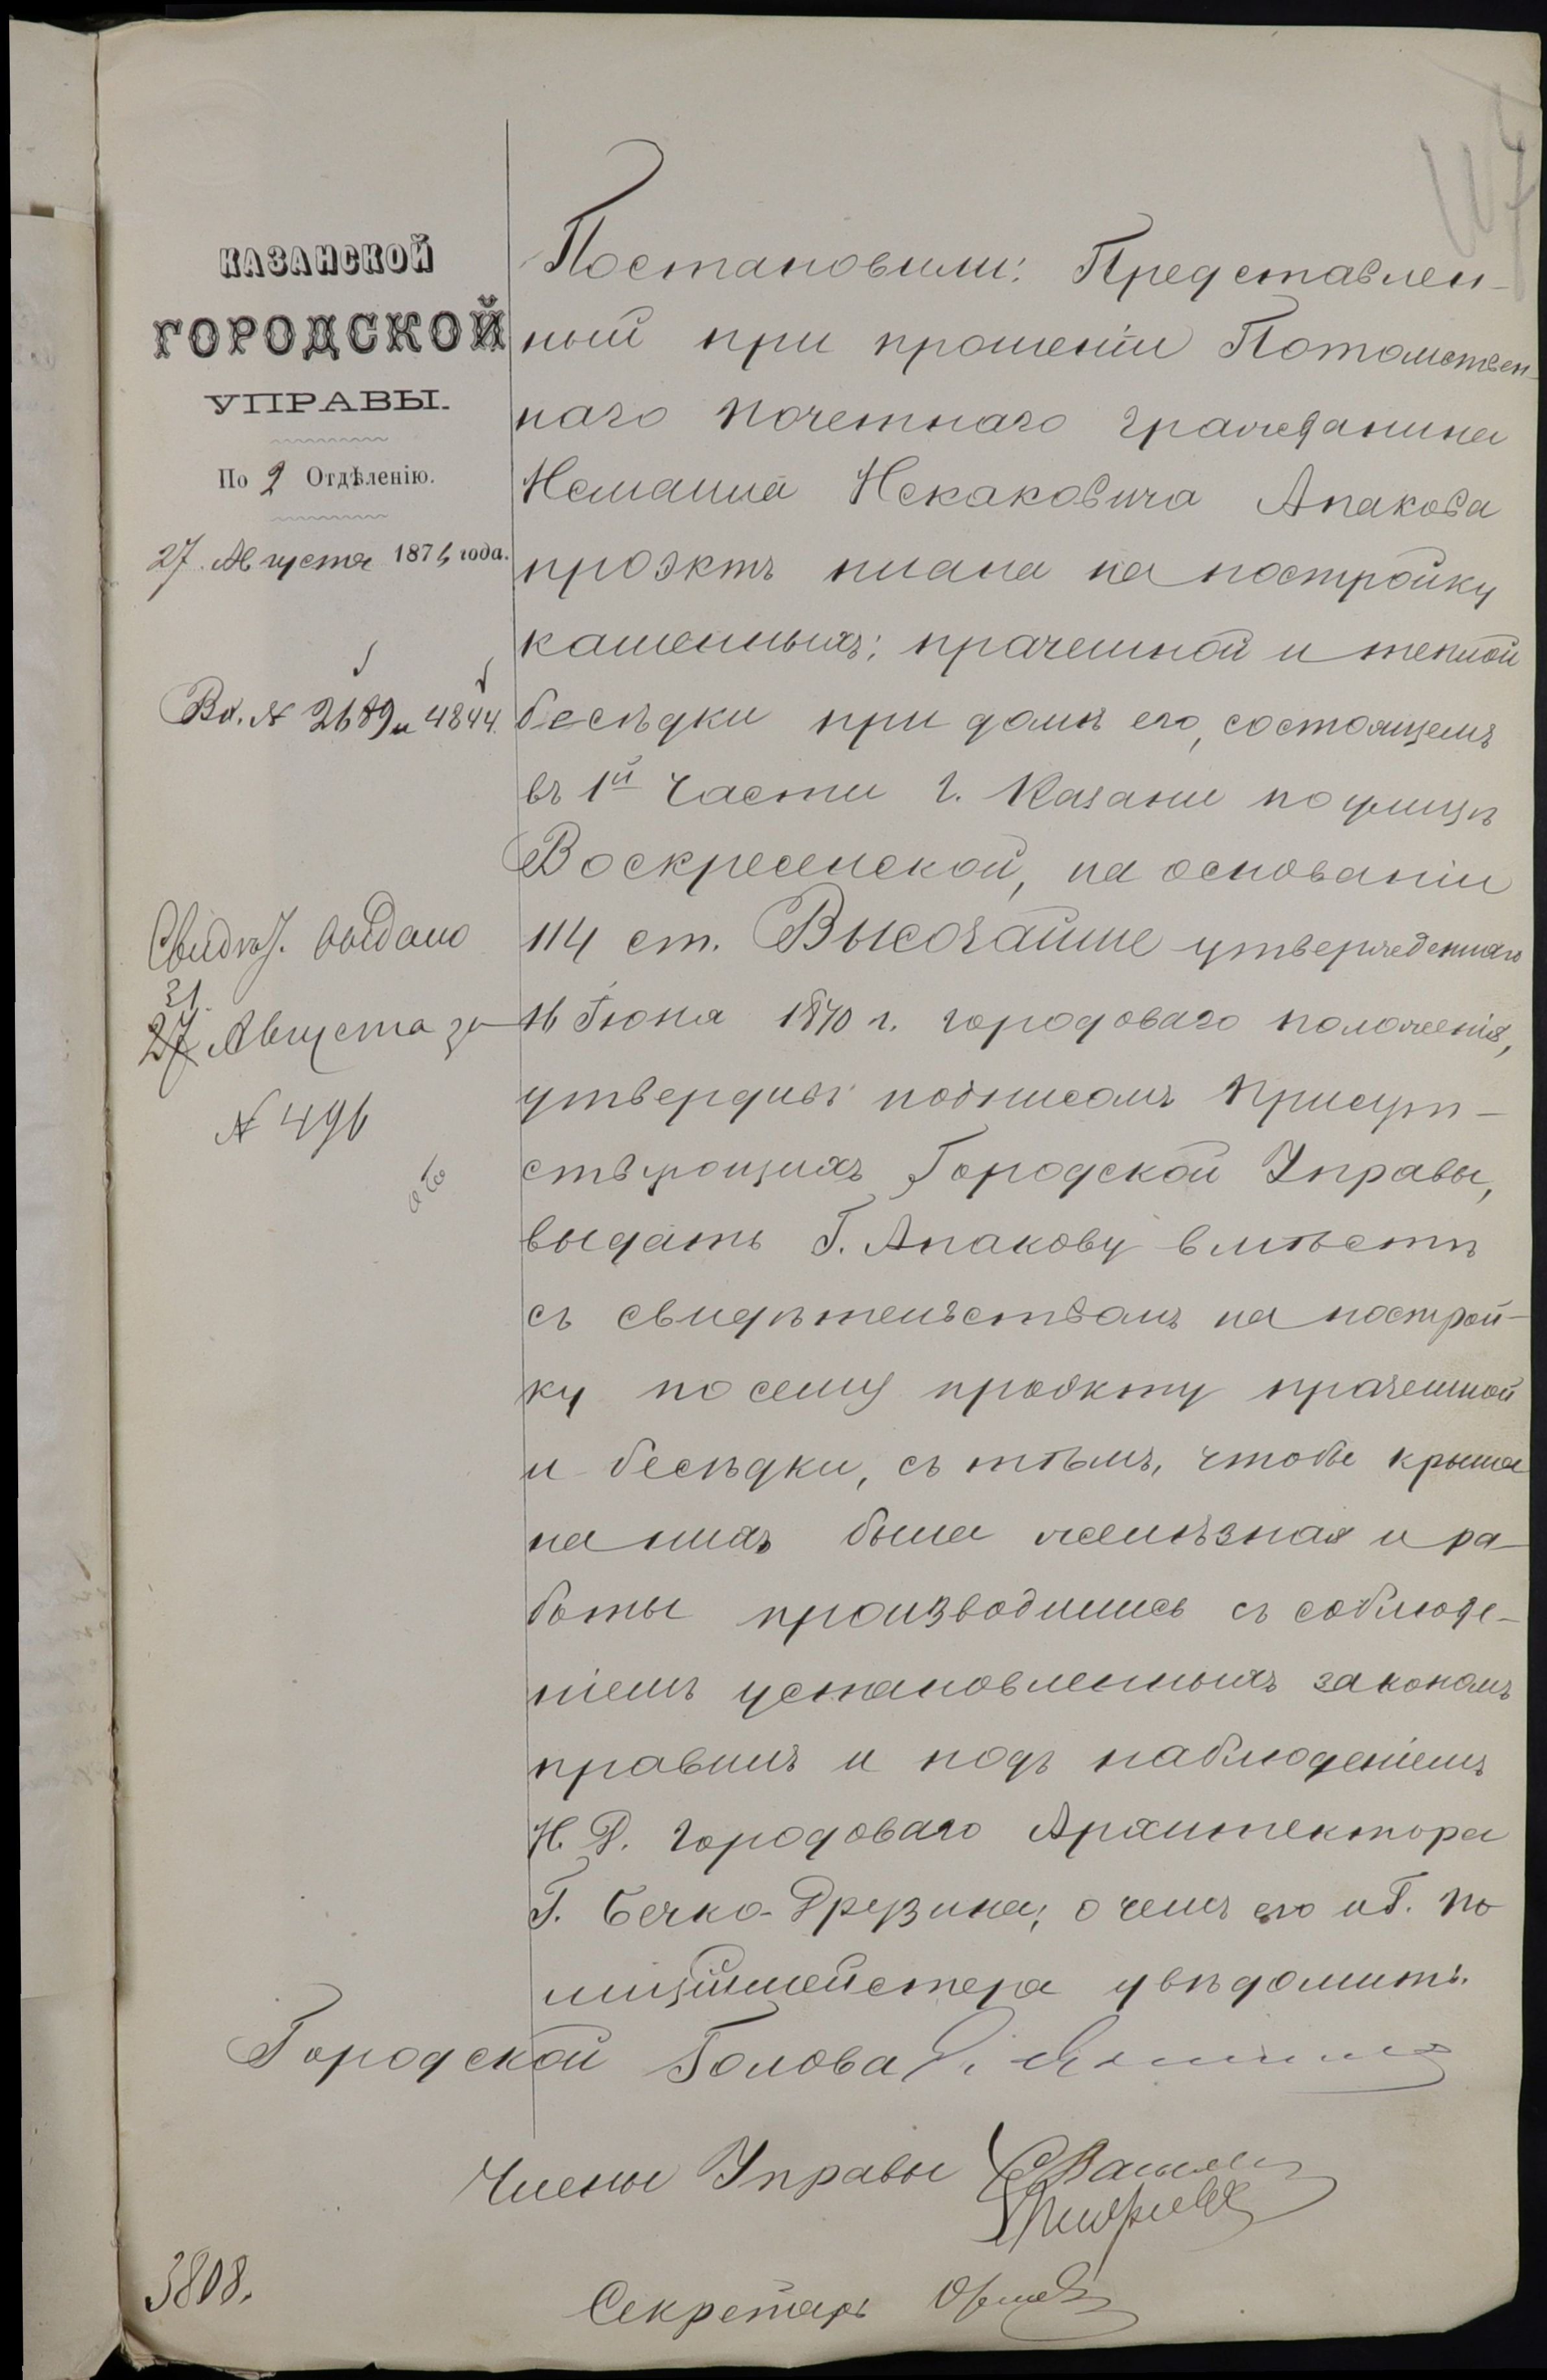 КАЗАНСКОЙ
ГОРОДСКОЙ
УПРАВЫ.
По 2 Отдѣленію.
27 Августа 1875 года.
Вх. № 2689 и 4844.
Свидѣт. выдано
31
27 Августа за
№ 496
Постановили: Представлен-
ный при прошеніи Потомствен-
наго почетнаго гражданина
Исмаила Искаковича Апакова
проэктъ плана на постройку
каменныхъ: прачешной и теплой
бесѣдки при домѣ его, состоящемъ
въ 1й части г. Казани по улицѣ
Воскресенской, на основаніи
114 ст. Высочайше утвержденнаго
16 Іюня 1870 г. городоваго положенія,
утвердивъ подписомъ Присут-
ствующихъ Городской Управы,
выдать Г. Апакову вмѣстѣ
съ свидѣтельствомъ на построй-
ку по сему проэкту прачешной
и бесѣдки, съ тѣмъ, чтобы крыша
на нихъ была желѣзная и ра-
боты производились съ соблюде-
ніемъ установленныхъ закономъ
правилъ и подъ наблюденіемъ
И. Д. Городоваго Архитектора
Г. Бечко-Друзина; о чемъ его и Г. По
лиціймейстера увѣдомить.
Городской Голова
Члены Управы
Секретарь
3808.